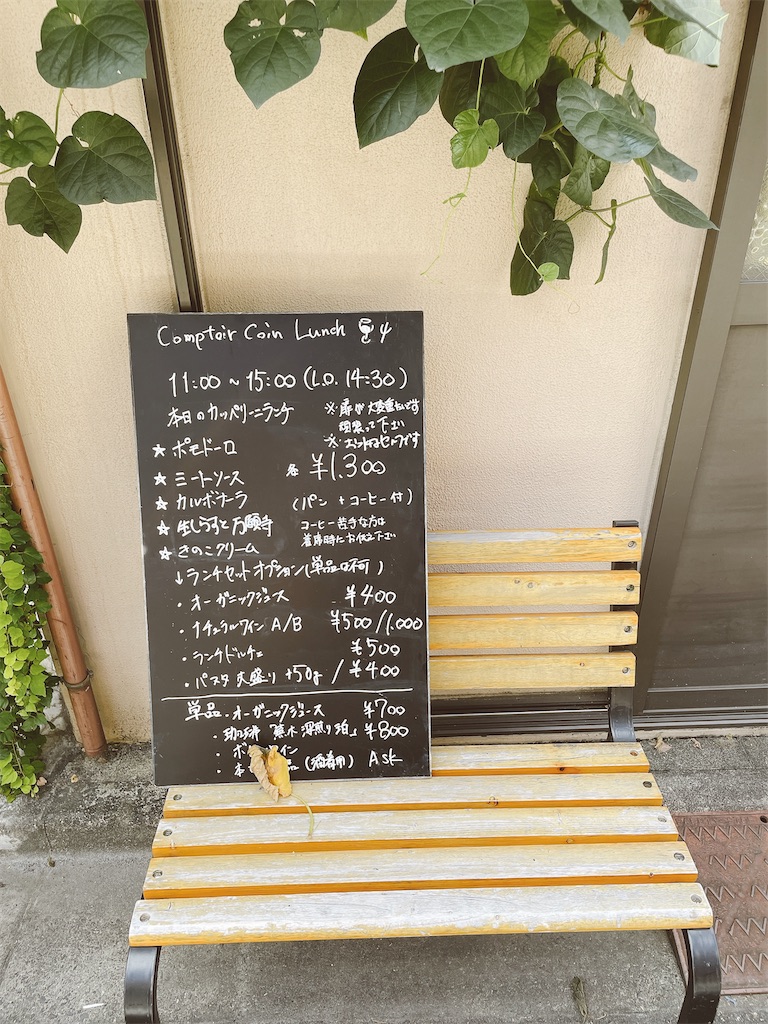 Comptoir Coin Lunch
11:00 ~ 15:00 (L.O. 14:30)
本日のカッペリーニランチ
※扉が大変重たいです
頑張って下さい
※お冷はセルフです
☆ ポモドーロ
☆ ミートソース
各 ¥1.300
☆ カルボナーラ
(パン + コーヒー付)
☆ 生しらすと万願寺
コーヒー苦手な方は
着席時にお伝え下さい
☆ きのこクリーム
↓ランチセットオプション(単品は不可)
・オーガニックジュース ¥400
・ナチュラルワイン A/B ¥500/1.000
・ランチドルチェ ¥500
・パスタ大盛り +50g / ¥400
単品・オーガニックジュース ¥700
・珈琲「蕪木 深煎り 珀」 ¥800
・ボ イン
・本 品 Ask